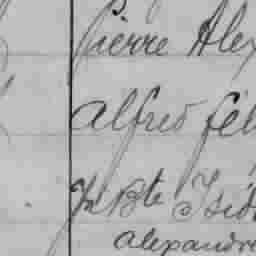 Pierre Alex
Alfred Fél
Jn Bte Isid
Alexandre